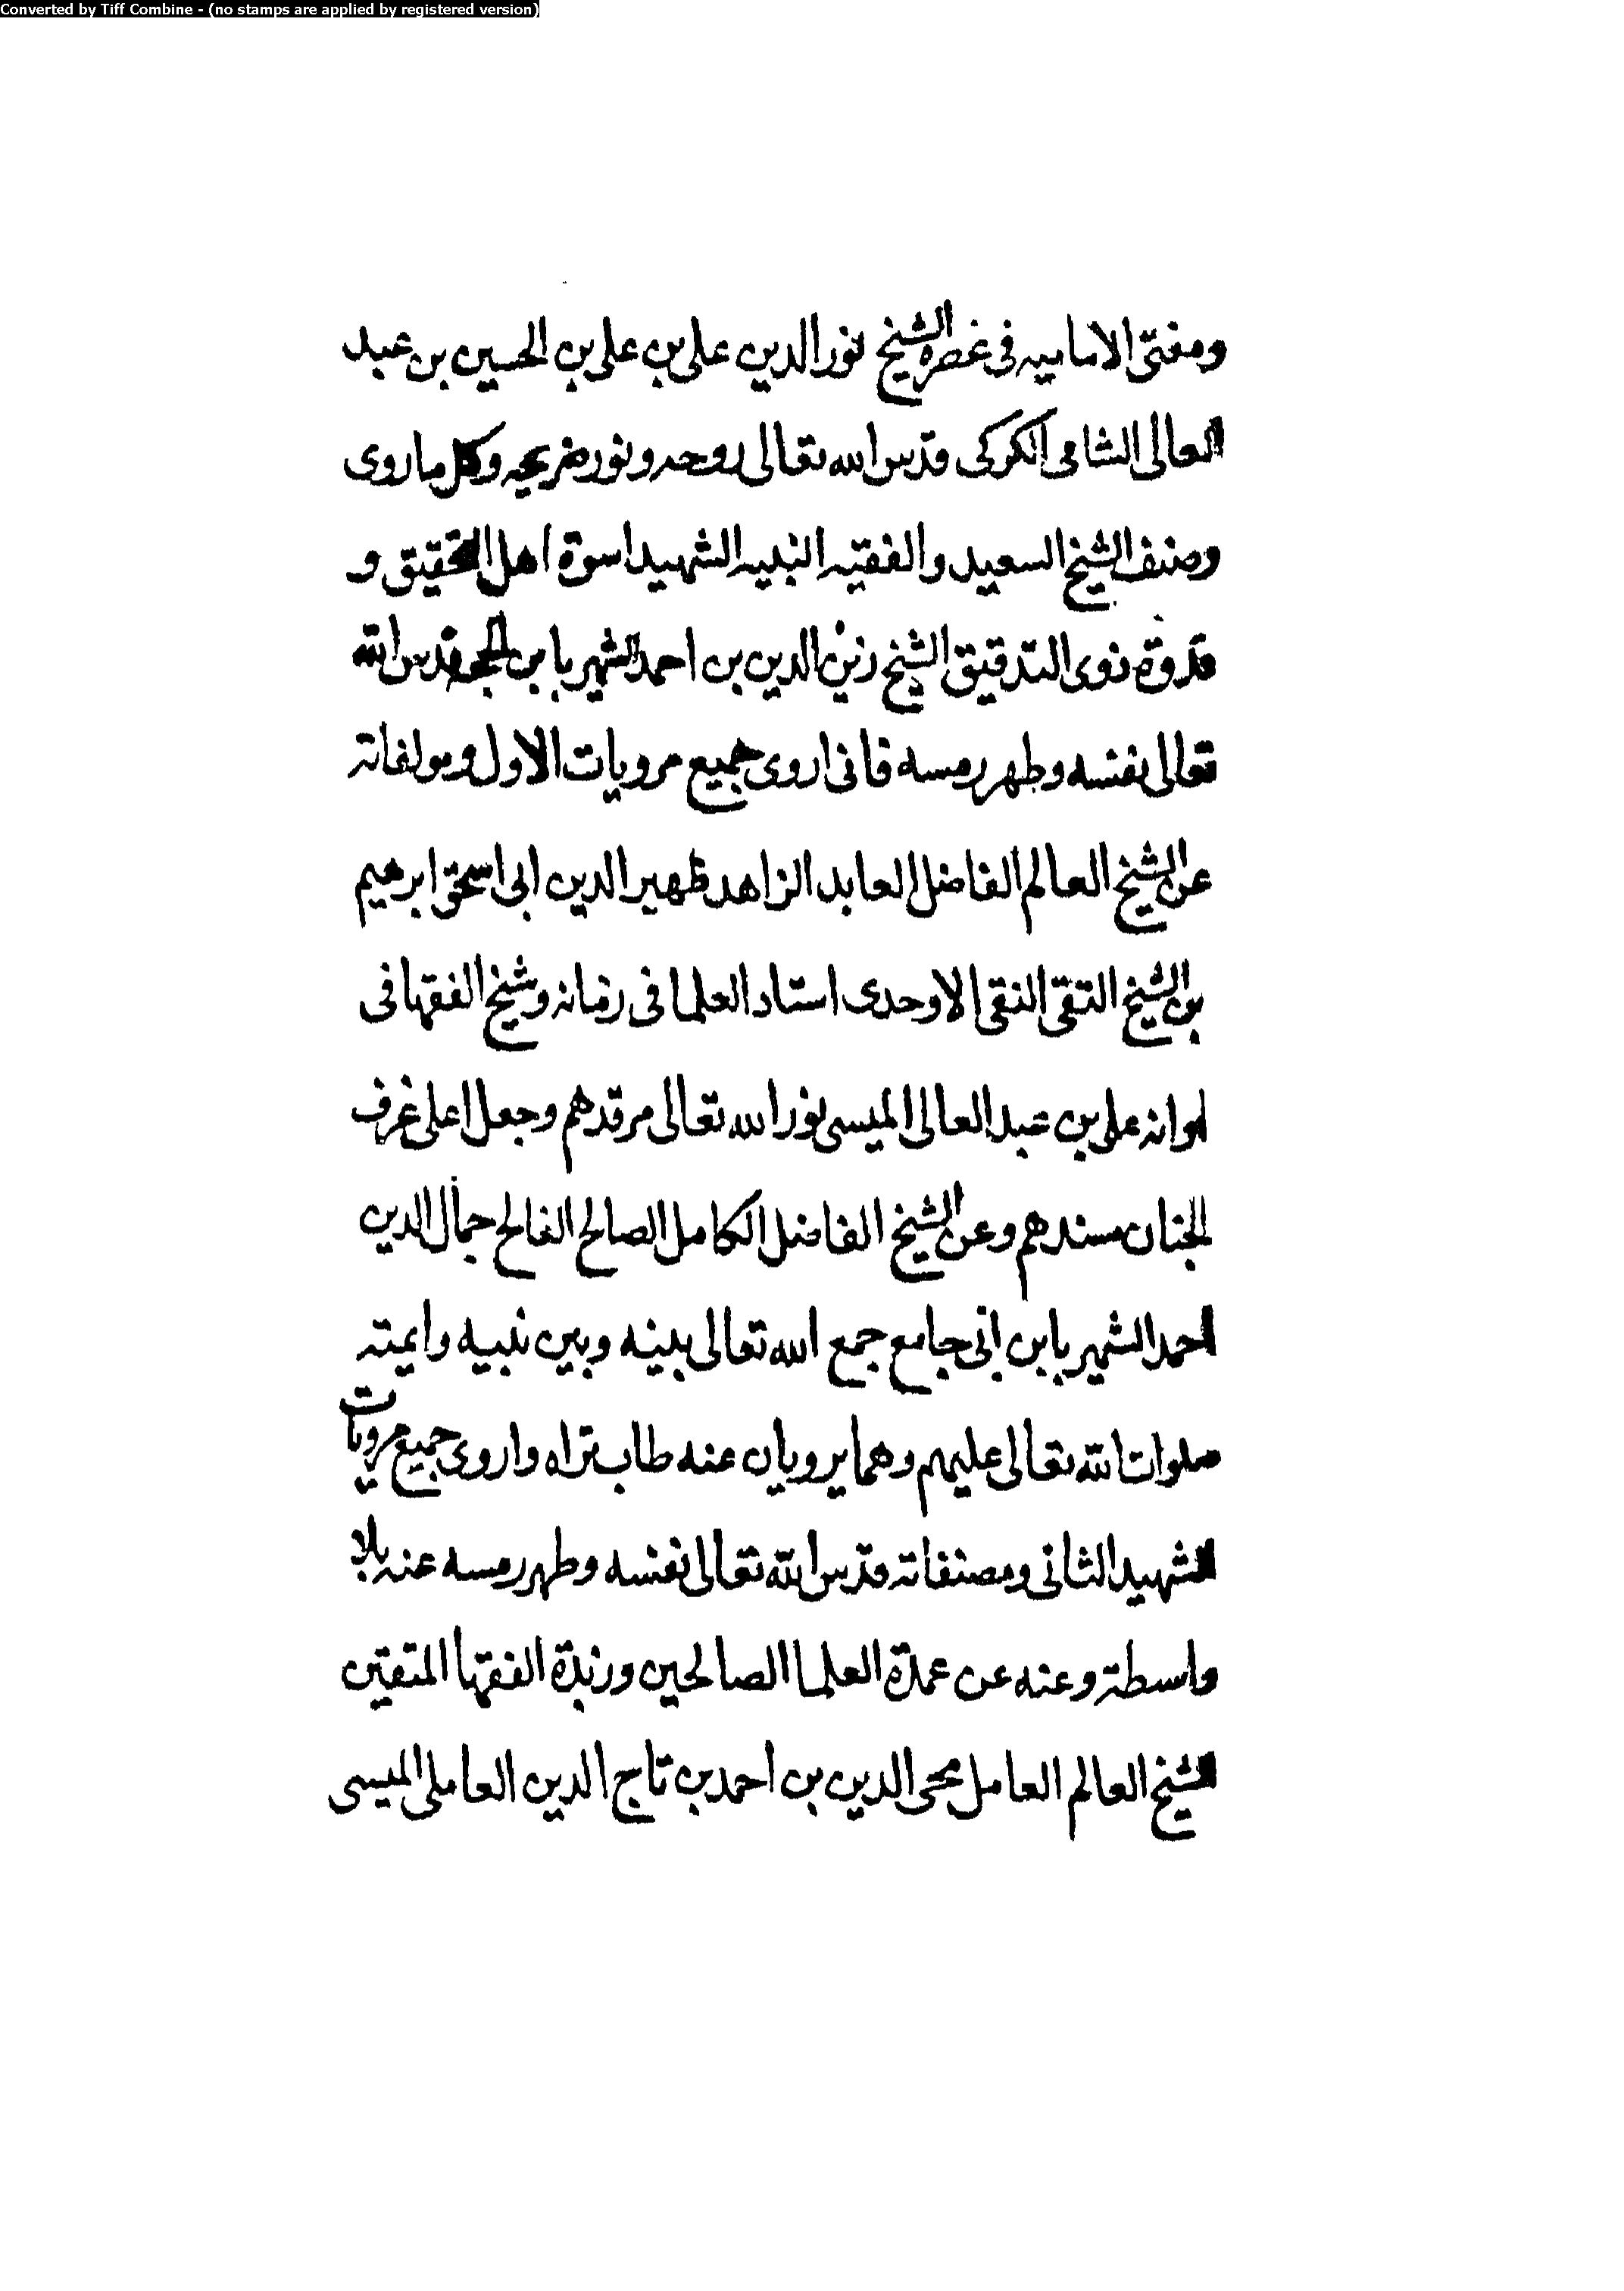 Converted by Tiff Combine - (no stamps are applied by registered version)
ومفتى الاماميه فى عصره الشيخ نور الدين على بن على بن الحسين بن عبد
العالى الشامى الكركى قدس الله تعالى روحه ونور ضريحه وكل ما روى
وصنف الشيخ السعيد والفقيه النبيه الشهيد اسوة اهل التحقيق و
قدوة ذوى التدقيق الشيخ زين الدين بن احمد الشهير بابن الحجه قدس الله
تعالى نفسه وطهر رمسه فانى اروى جميع مرويات الاول ومولفاته
عن الشيخ العالم الفاضل العابد الزاهد ظهير الدين ابى اسحق ابرهيم
بن الشيخ التقى النقى الاوحدى استاد العلما فى زمانه وشيخ الفقها فى
اوانه على بن عبد العالى الميسى نور الله تعالى مرقدهم وجعل اعلى غرف
الجنان مسندهم وعن الشيخ الفاضل الكامل الصالح الفالح جمال الدين
احمد الشهير بابن ابى جامع جمع الله تعالى بينه وبين نبيه وايمته
صلوات الله تعالى عليهم وهما يرويان عنه طاب تراه واروى جميع مرويات
الشهيد الثانى ومصنفاته قدس الله تعالى نفسه وطهر رمسه عنه بلا
واسطة وعنه عن عمدة العلما الصالحين وزبدة الفقها المتقين
الشيخ العالم العامل محى الدين بن احمد بن تاج الدين العاملى الميسى